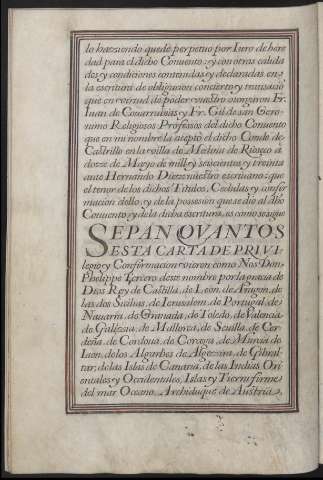 lo haziendo quede perpetuo por Iuro de here
dad para el dicho Conuento: y con otras calida
des y condiciones contenidas y declaradas en
la escritura de obligacion concierto y transacio
que en virtud de poder vuestro otorgaron Fr.
Iuan de Couarrubias y Fr. Gil de san Gero-
nimo Religiosos Professos del dicho Conuento
que en mi nombre la acepto el dicho Conde de
Castrillo en la villa de Medina de Rioseco a
doze de Mayo de mill y seiscientos y treinta
ante Hernando Diez nuestro escriuano: que
el tenor de los dichos Titulos, Cedulas y confir
macion dello, y de la possession que se dio al dho
Conuento y de la dicha escritura, es como se sigue
SEPAN QVANTOS
ESTA CARTA DE PRIVI-
legio y Confirmacion vieren como Nos Don
Phelippe Tercero deste nombre por la gracia de
Dios Rey de Castilla, de Leon, de Aragon, de
las dos Sicilias, de Ierusalem, de Portugal, de
Nauarra, de Granada, de Toledo, de Valencia
de Galizia, de Mallorca, de Seuilla, de Cer
deña, de Cordoua, de Corcega, de Murcia de
Iaen, de los Algarbes de Algezira, de Gibral
tar, de las Islas de Canaria, de las Indias Ori
entales y Occidentales, Islas y Tierra firme
del mar Oceano, Archiduque de Austria,